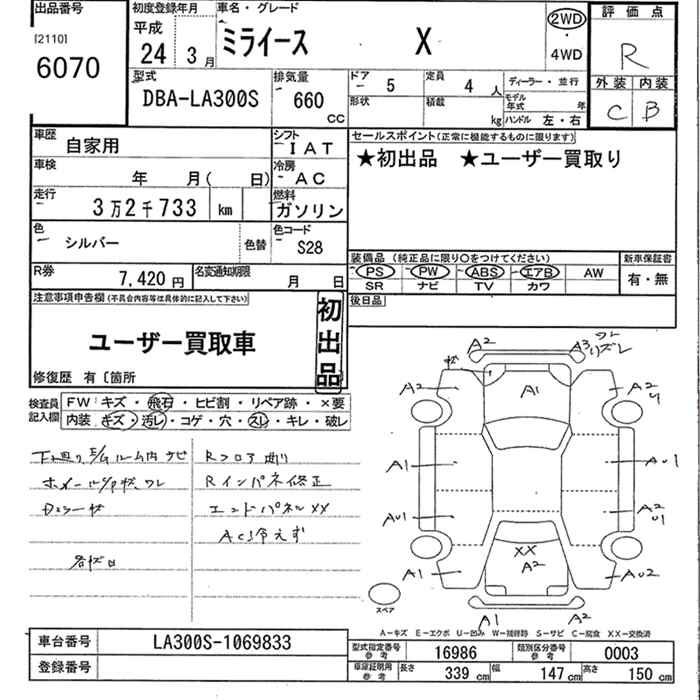 出品番号 初度登録年月 車名・グレード
[2110] 平成 24年 3月 ミライース X 2WD・4WD
6070
評価点 R
外装 内装
C B
型式 排気量 ドア 5 定員 4人 ディーラー・並行
DBA-LA300S 660 CC 形状 積載 kg モデル年式 年 ハンドル 左・右
車歴 自家用 シフト IAT
セールスポイント(正常に機能するものに限ります)
★初出品 ★ユーザー買取り
車検 年 月( 日) 冷房 AC
走行 3万2千733 km 燃料 ガソリン
色 シルバー 色替 色コード S28
装備品 (純正品に限り○をつけてください) 新車保証書
PS PW ABS エアB AW 有・無
SR ナビ TV カワ
R券 7,420円 名変通知期限 月 日
後日品
注意事項申告欄(不具合内容等は具体的に記入して下さい)
初出品
ユーザー買取車
修復歴 有〔箇所
検査員記入欄 FW:キズ・飛石・ヒビ割・リペア跡・×要
内装:キズ・汚レ・コゲ・穴・スレ・キレ・破レ
下廻り E/Gルーム内 サビ
Rフロア曲り
Rインパネ修正
エンドパネルXX
ACガ冷えず
A2 A3
A2 A1 A2
A1 AU1
AU1 A2
XX
A2
A1 AU2
A1 A2
スペア
A-キズ E-エクボ U-凹み W-補修跡 S-サビ C-腐食 XX-交換済
車台番号 LA300S-1069833
登録番号
型式指定番号 参考 16986 類別区分番号 参考 0003
車庫証明用 参考 長さ 339 cm 幅 147 cm 高さ 150 cm